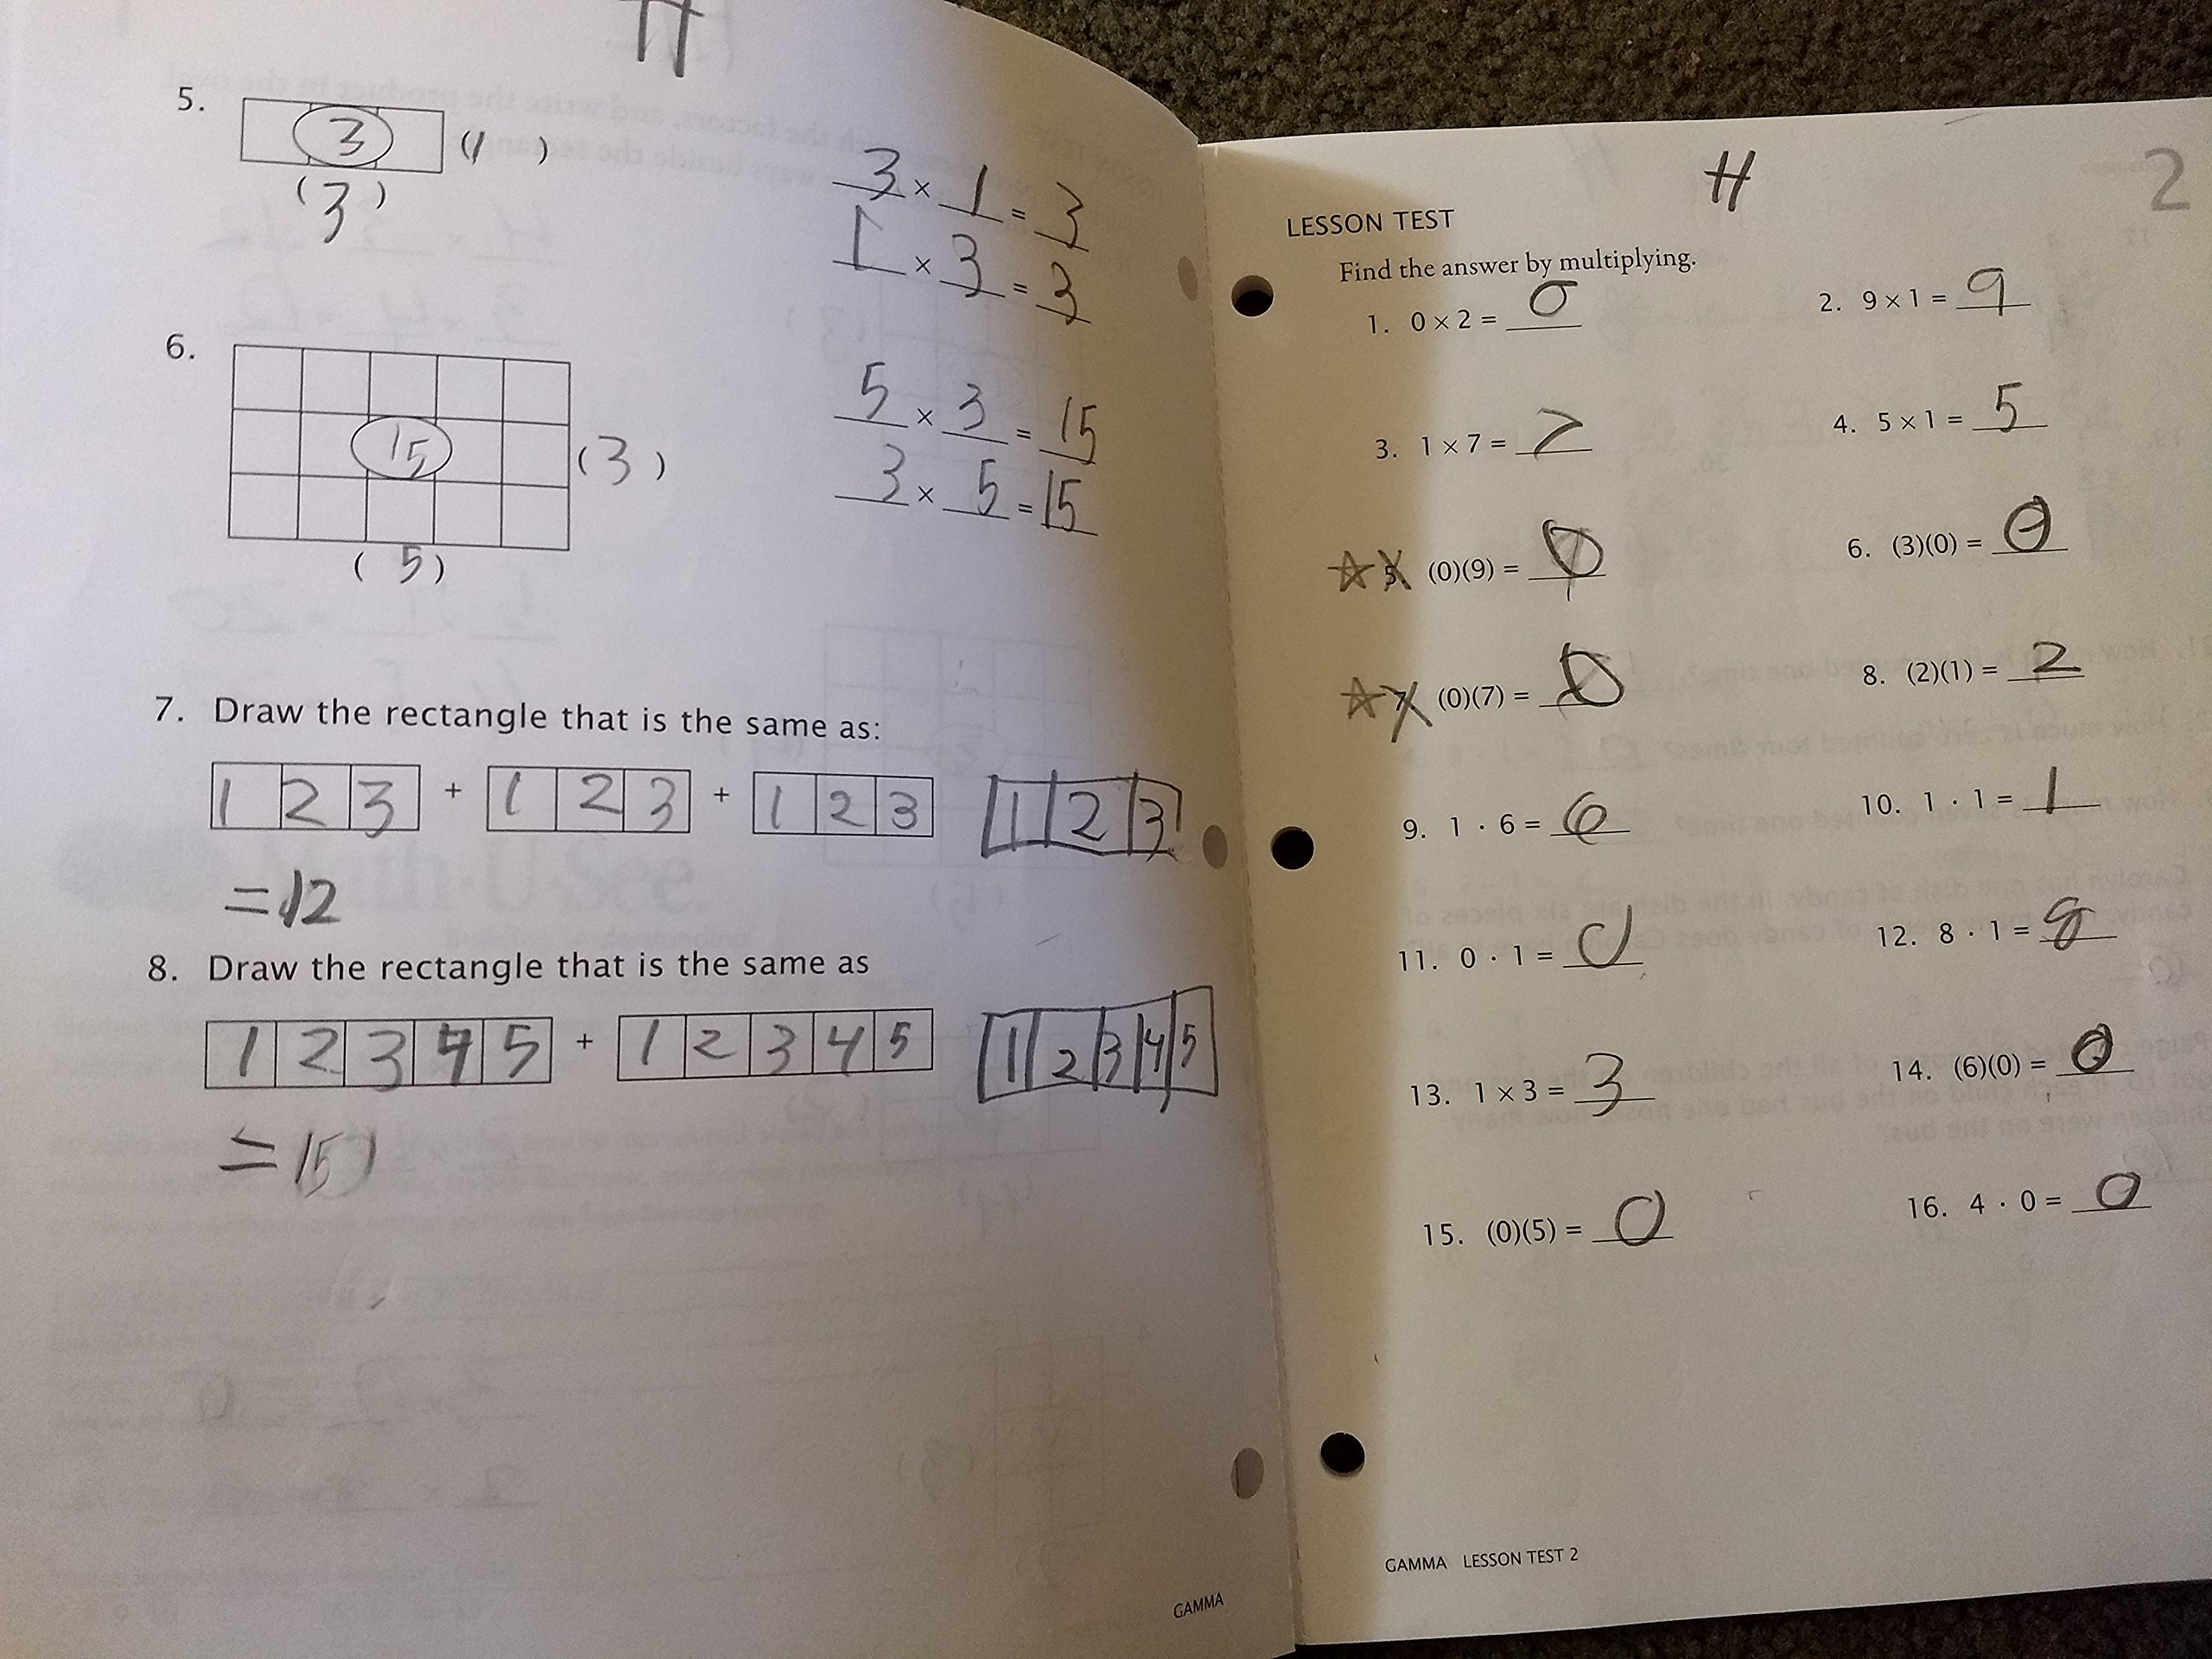 H
5.
3
(1 )
(3)
3 × 1 = 3
1 × 3 = 3
6.
15
(3)
(5)
5 × 3 = 15
3 × 5 = 15
7. Draw the rectangle that is the same as:
1 2 3 + 1 2 3 + 1 2 3 1 2 3
=12
8. Draw the rectangle that is the same as
1 2 3 4 5 + 1 2 3 4 5 1 2 3 4 5
=15
GAMMA
H
2
LESSON TEST
Find the answer by multiplying.
1. 0 × 2 = 0
2. 9 × 1 = 9
3. 1 × 7 = 7
4. 5 × 1 = 5
5. (0)(9) = 0
6. (3)(0) = 0
7. (0)(7) = 0
8. (2)(1) = 2
9. 1 · 6 = 6
10. 1 · 1 = 1
11. 0 · 1 = 0
12. 8 · 1 = 8
13. 1 × 3 = 3
14. (6)(0) = 0
15. (0)(5) = 0
16. 4 · 0 = 0
GAMMA LESSON TEST 2